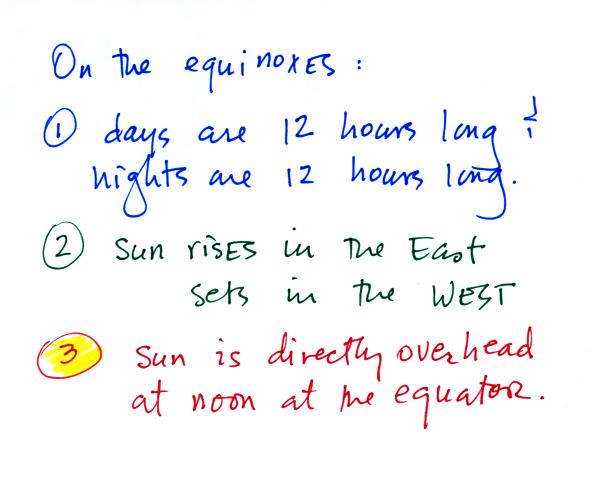 On the equinoxes :
① days are 12 hours long &
nights are 12 hours long.
② sun rises in the East
sets in the WEST
③ sun is directly overhead
at noon at the equator.